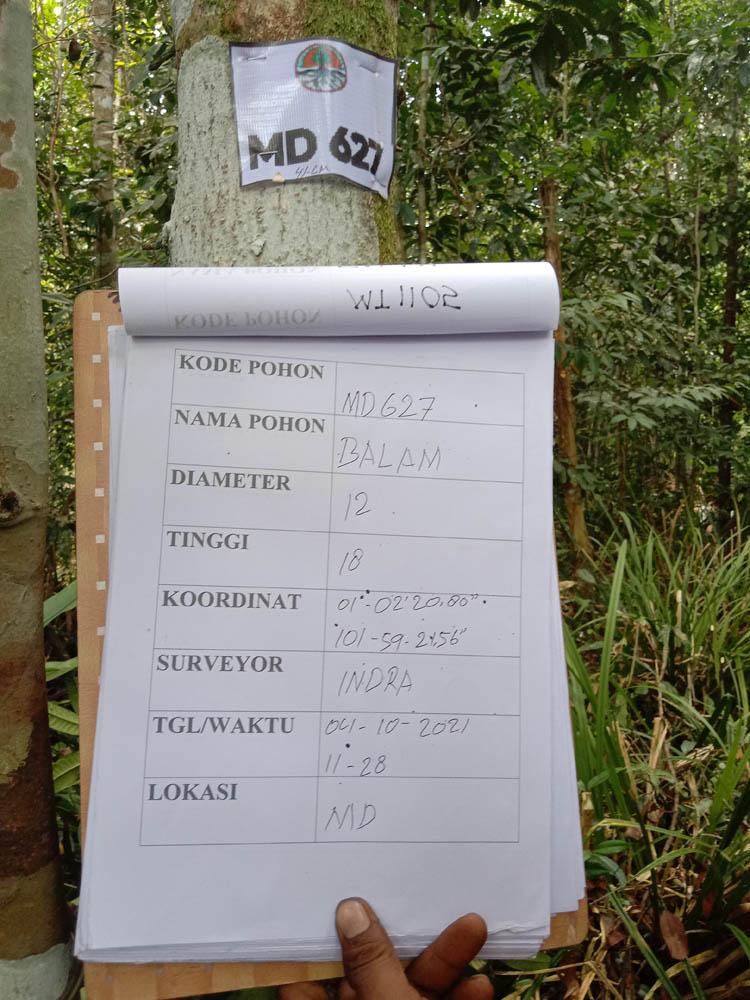 MD 627
KODE POHON
MD627
NAMA POHON
BALAM
DIAMETER
12
TINGGI
18
KOORDINAT
01°-02'20,80"
101-59-21,56"
SURVEYOR
INDRA
TGL/WAKTU
04-10-2021
11-28
LOKASI
MD